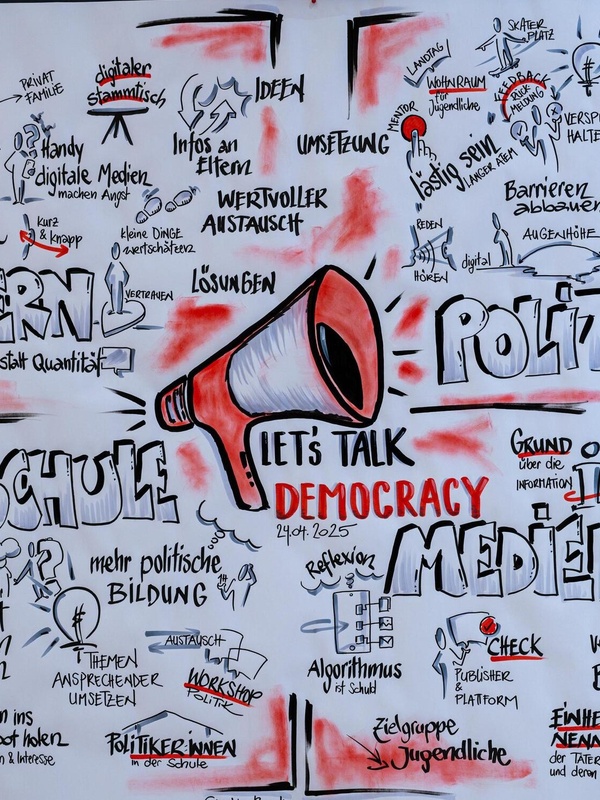 PRIVAT
FAMILIE
digitaler
Stammtisch
IDEEN
Infos an
Eltern
UMSETZUNG
Handy
digitale Medien
machen Angst
WERTVOLLER
AUSTAUSCH
kurz
& knapp
kleine DINGE
wertschätzen
VERTRAUEN
LÖSUNGEN
ERN
statt Quantität
SKATER
PLATZ
LANDTAG
WOHNRAUM
für
Jugendliche
FEEDBACK
RÜCK-
MELDUNG
MENTOR
lästig sein
LANGER ATEM
VERSP
HALTE
Barrieren
abbauen
AUGENHÖHE
REDEN
HÖREN
digital
POLIT
LET'S TALK
DEMOCRACY
24.04.2025
SCHULE
mehr politische
BILDUNG
THEMEN
ANSPRECHENDER
UMSETZEN
AUSTAUSCH
WORKSHOP
POLITIK
POLITIKER:INNEN
in der Schule
n ins
oot holen
n & Interesse
GRUND
über die
INFORMATION
MEDIEN
Reflexion
Algorithmus
ist Schuld
CHECK
PUBLISHER
&
PLATTFORM
Zielgruppe
Jugendliche
EINHE
NENN
der TÄTER
und deren